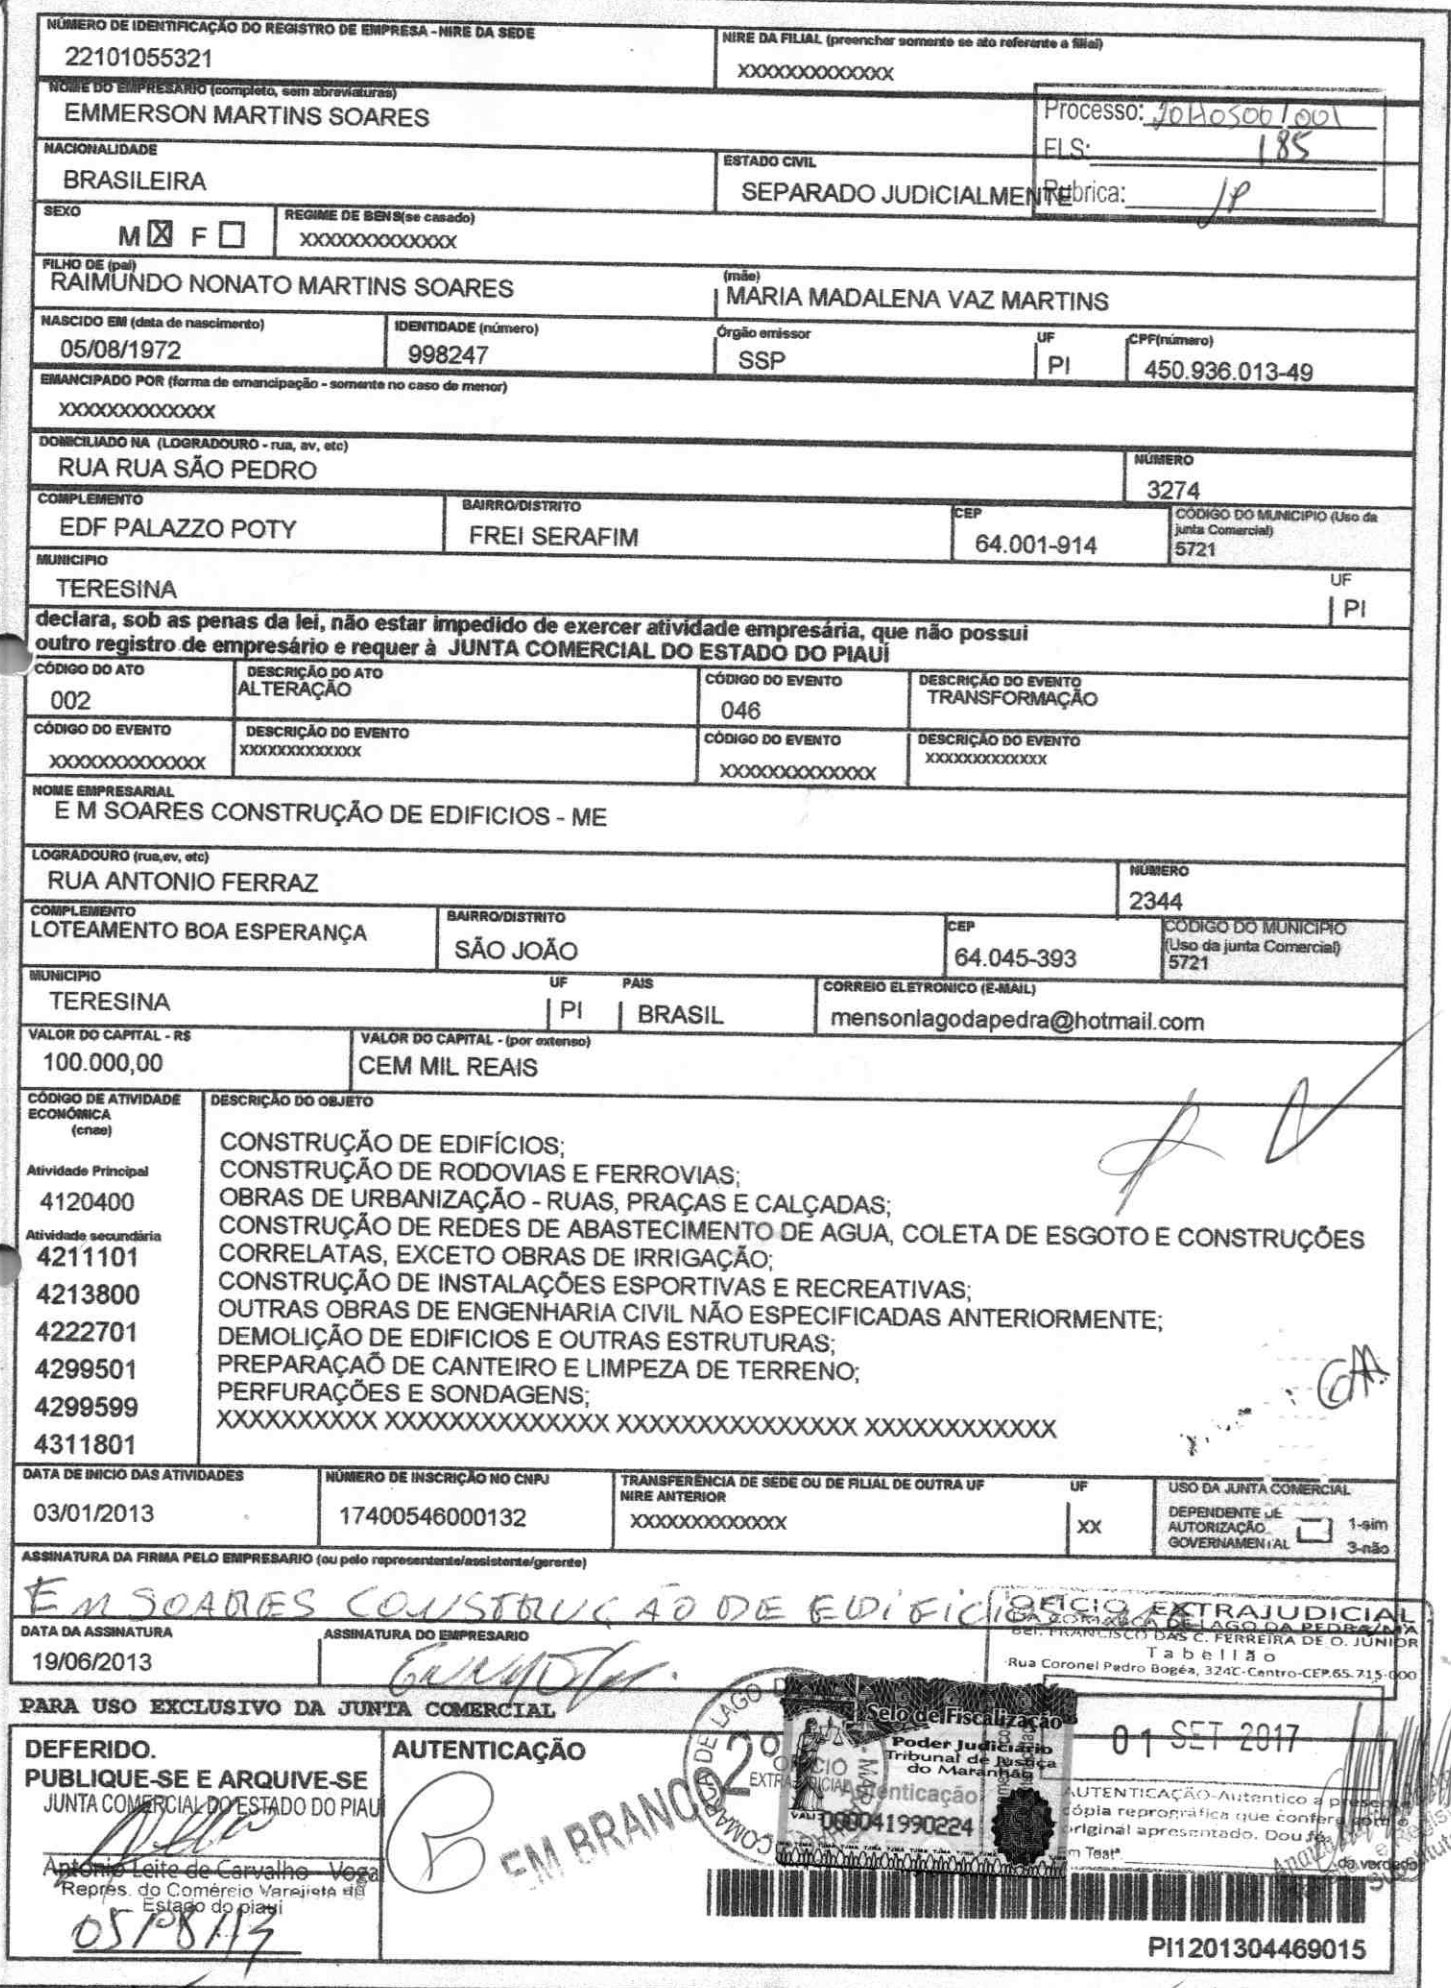 NÚMERO DE IDENTIFICAÇÃO DO REGISTRO DE EMPRESA - NIRE DA SEDE
22101055321
NIRE DA FILIAL (preencher somente se ato referente a filial)
XXXXXXXXXXXXX
NOME DO EMPRESÁRIO (completo, sem abreviaturas)
EMMERSON MARTINS SOARES
Processo:
FLS: 185
Rubrica:
NACIONALIDADE
BRASILEIRA
ESTADO CIVIL
SEPARADO JUDICIALMENTE
SEXO
M X F
REGIME DE BENS(se casado)
XXXXXXXXXXXXX
FILHO DE (pai)
RAIMUNDO NONATO MARTINS SOARES
(mãe)
MARIA MADALENA VAZ MARTINS
NASCIDO EM (data de nascimento)
05/08/1972
IDENTIDADE (número)
998247
Órgão emissor
SSP
UF
PI
CPF(número)
450.936.013-49
EMANCIPADO POR (forma de emancipação - somente no caso de menor)
XXXXXXXXXXXXX
DOMICILIADO NA (LOGRADOURO - rua, av, etc)
RUA RUA SÃO PEDRO
NÚMERO
3274
COMPLEMENTO
EDF PALAZZO POTY
BAIRRO/DISTRITO
FREI SERAFIM
CEP
64.001-914
CÓDIGO DO MUNICIPIO (Uso da
junta Comercial)
5721
MUNICIPIO
TERESINA
UF
PI
declara, sob as penas da lei, não estar impedido de exercer atividade empresária, que não possui
outro registro de empresário e requer à JUNTA COMERCIAL DO ESTADO DO PIAUÍ
CÓDIGO DO ATO
002
DESCRIÇÃO DO ATO
ALTERAÇÃO
CÓDIGO DO EVENTO
046
DESCRIÇÃO DO EVENTO
TRANSFORMAÇÃO
CÓDIGO DO EVENTO
XXXXXXXXXXXXX
DESCRIÇÃO DO EVENTO
XXXXXXXXXXXXX
CÓDIGO DO EVENTO
XXXXXXXXXXXXX
DESCRIÇÃO DO EVENTO
XXXXXXXXXXXXX
NOME EMPRESARIAL
E M SOARES CONSTRUÇÃO DE EDIFICIOS - ME
LOGRADOURO (rua,av, etc)
RUA ANTONIO FERRAZ
NÚMERO
2344
COMPLEMENTO
LOTEAMENTO BOA ESPERANÇA
BAIRRO/DISTRITO
SÃO JOÃO
CEP
64.045-393
CÓDIGO DO MUNICIPIO
(Uso da junta Comercial)
5721
MUNICIPIO
TERESINA
UF
PI
PAIS
BRASIL
CORREIO ELETRONICO (E-MAIL)
mensonlagodapedra@hotmail.com
VALOR DO CAPITAL - R$
100.000,00
VALOR DO CAPITAL - (por extenso)
CEM MIL REAIS
CÓDIGO DE ATIVIDADE
ECONÔMICA
(cnae)
Atividade Principal
4120400
Atividade secundária
4211101
4213800
4222701
4299501
4299599
4311801
DESCRIÇÃO DO OBJETO
CONSTRUÇÃO DE EDIFÍCIOS;
CONSTRUÇÃO DE RODOVIAS E FERROVIAS;
OBRAS DE URBANIZAÇÃO - RUAS, PRAÇAS E CALÇADAS;
CONSTRUÇÃO DE REDES DE ABASTECIMENTO DE AGUA, COLETA DE ESGOTO E CONSTRUÇÕES
CORRELATAS, EXCETO OBRAS DE IRRIGAÇÃO;
CONSTRUÇÃO DE INSTALAÇÕES ESPORTIVAS E RECREATIVAS;
OUTRAS OBRAS DE ENGENHARIA CIVIL NÃO ESPECIFICADAS ANTERIORMENTE;
DEMOLIÇÃO DE EDIFICIOS E OUTRAS ESTRUTURAS;
PREPARAÇAÕ DE CANTEIRO E LIMPEZA DE TERRENO;
PERFURAÇÕES E SONDAGENS;
XXXXXXXXXX XXXXXXXXXXXXXX XXXXXXXXXXXXXXX XXXXXXXXXXXX
DATA DE INICIO DAS ATIVIDADES
03/01/2013
NÚMERO DE INSCRIÇÃO NO CNPJ
17400546000132
TRANSFERÊNCIA DE SEDE OU DE FILIAL DE OUTRA UF
NIRE ANTERIOR
XXXXXXXXXXXXX
UF
XX
USO DA JUNTA COMERCIAL
DEPENDENTE DE
AUTORIZAÇÃO
GOVERNAMENTAL
1-sim
3-não
ASSINATURA DA FIRMA PELO EMPRESARIO (ou pelo representante/assistente/gerente)
EM SOARES CONSTRUÇÃO DE EDIFICIOS
OFICIO EXTRAJUDICIAL
DA COMARCA DE LAGO DA PEDRA/MA
Bel. FRANCISCO DAS C. FERREIRA DE O. JÚNIOR
Tabelião
Rua Coronel Pedro Bogéa, 324C-Centro-CEP.65.715-000
DATA DA ASSINATURA
19/06/2013
ASSINATURA DO EMPRESARIO
PARA USO EXCLUSIVO DA JUNTA COMERCIAL
DEFERIDO.
PUBLIQUE-SE E ARQUIVE-SE
JUNTA COMERCIAL DO ESTADO DO PIAUI
Antônio Leite de Carvalho - Vogal
Repres. do Comércio Varejista do
Estado do piauí
05/08/13
AUTENTICAÇÃO
EM BRANCO
COMARCA DE LAGO
2º OFICIO
EXTRAJUDICIAL
Selo de Fiscalização
Poder Judiciário
Tribunal de Justiça
do Maranhão
Autenticação
000041990224
01 SET 2017
AUTENTICAÇÃO-Autentico a presente
cópia reprográfica que confere com o
original apresentado. Dou fé.
Em Testª
da verdade
PI1201304469015